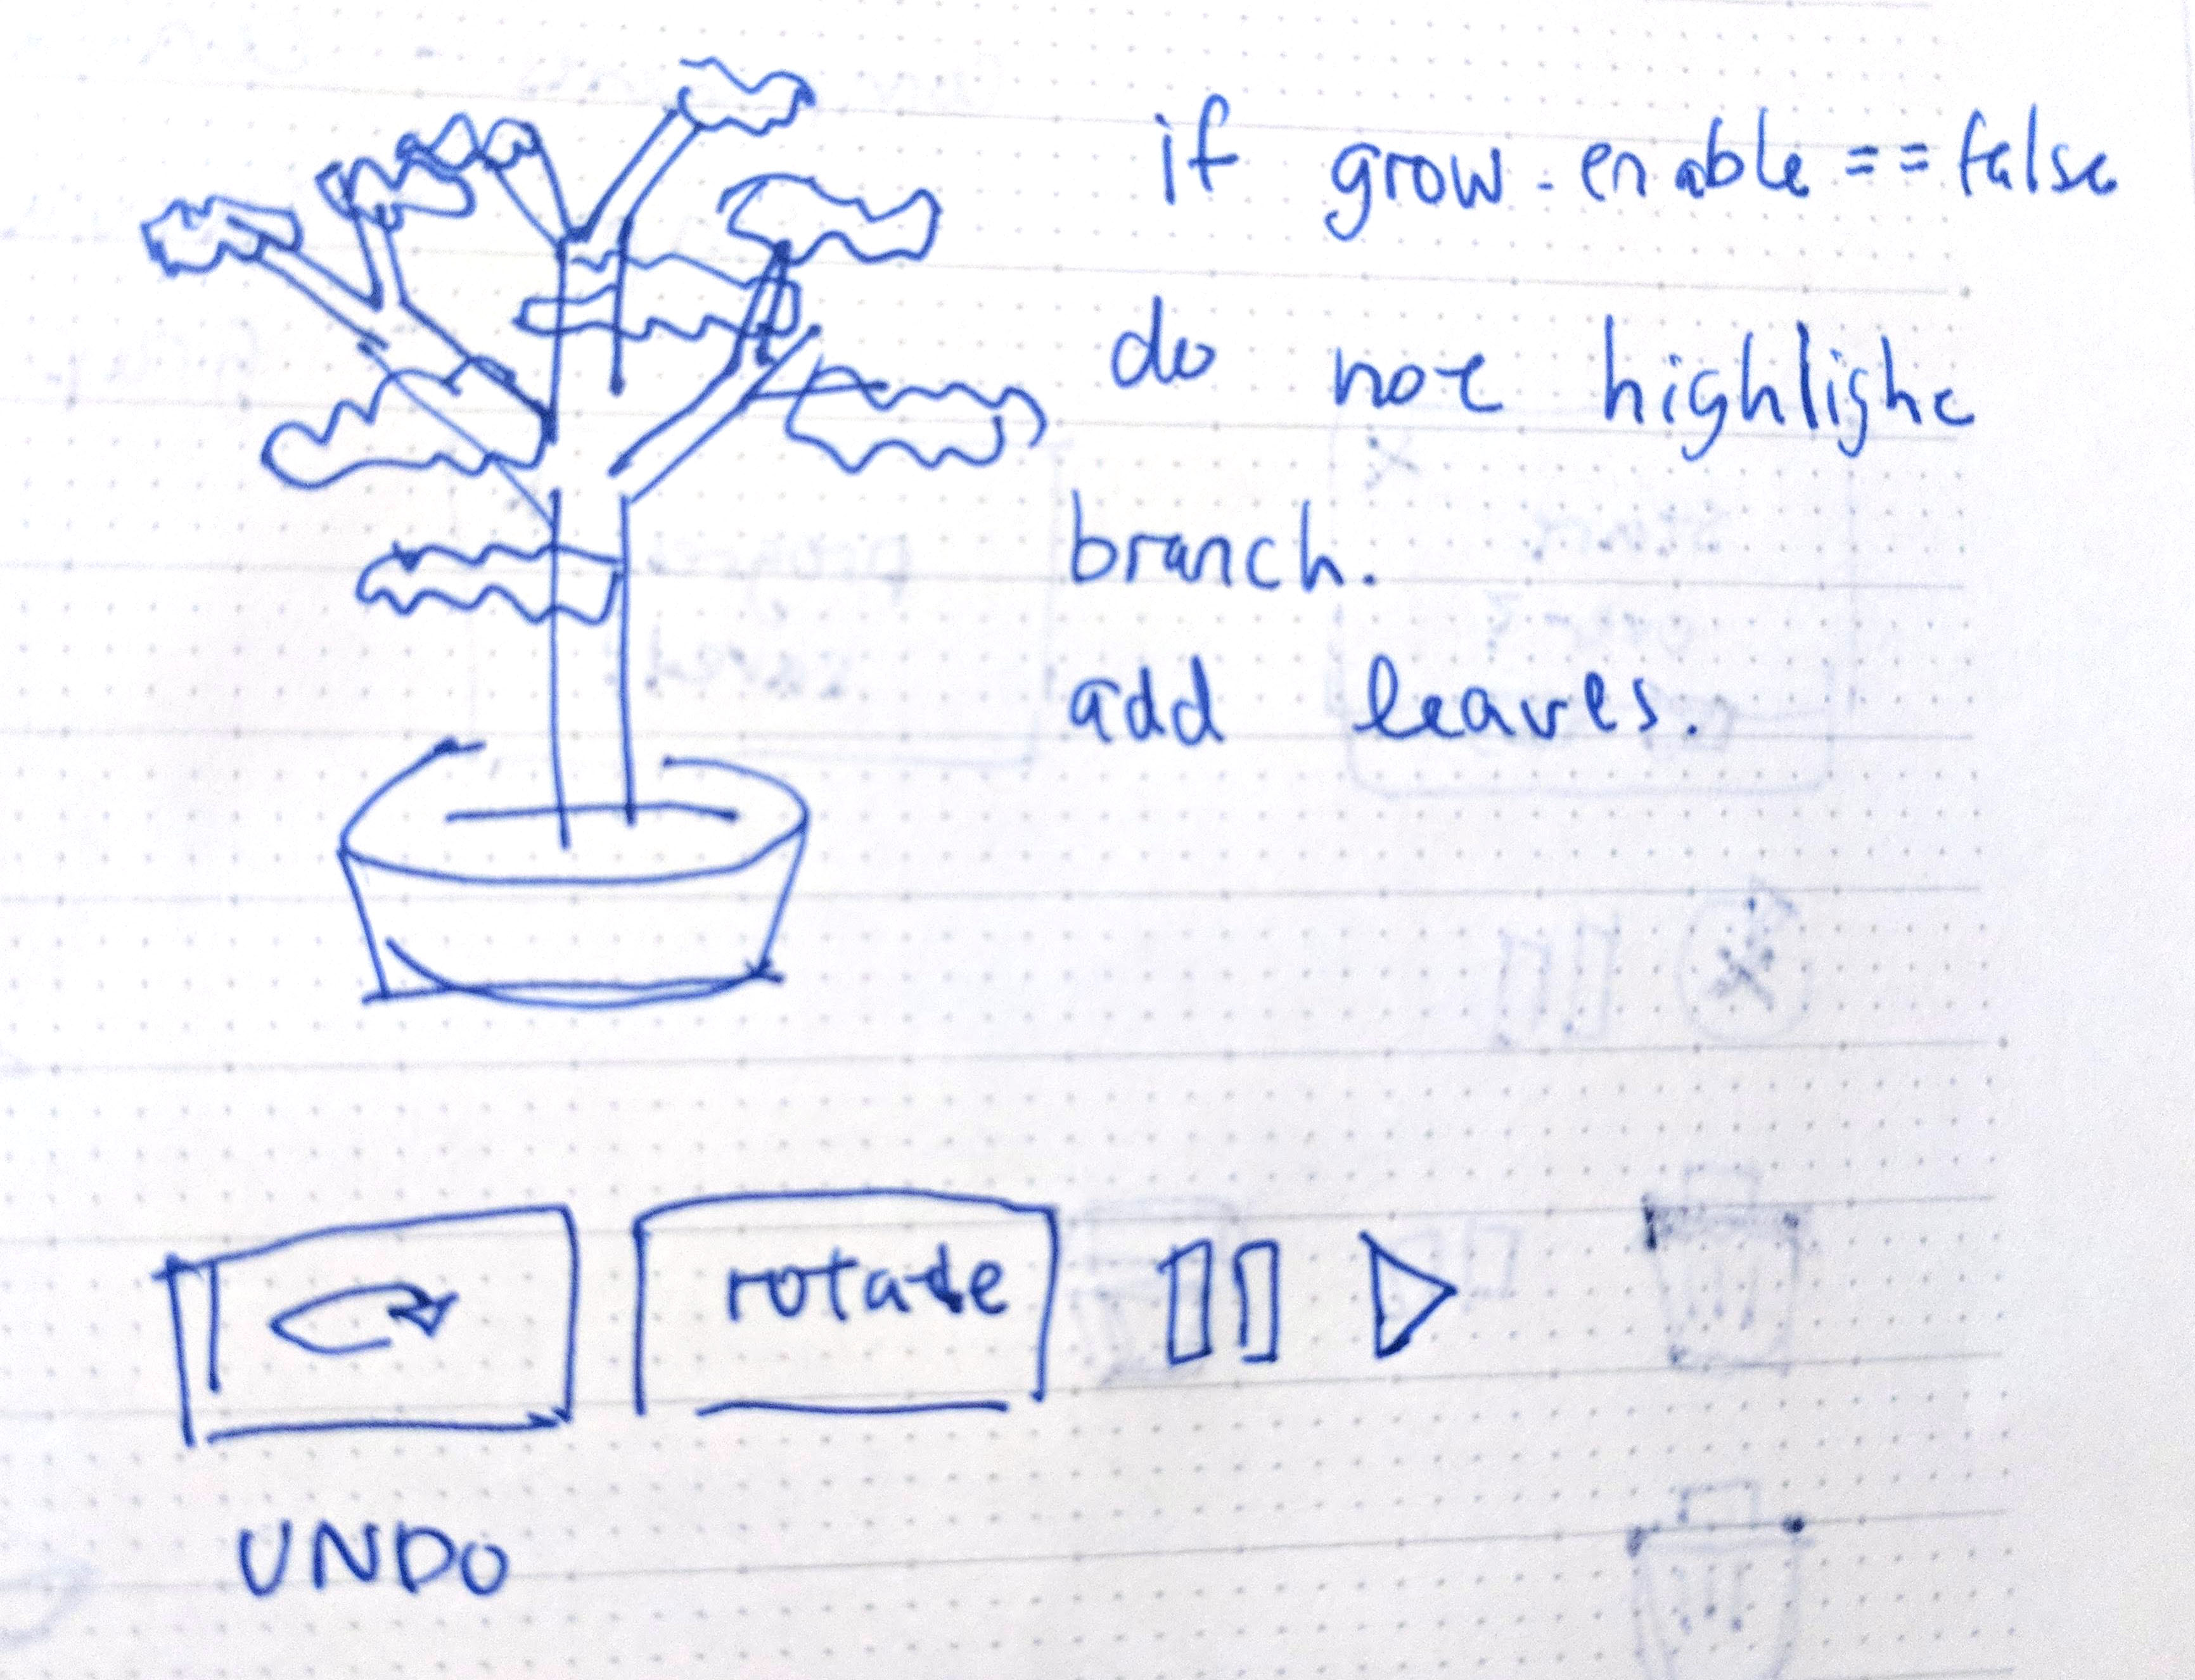 if grow-enable == false
do not highlight
branch.
add leaves.
rotate
UNDO